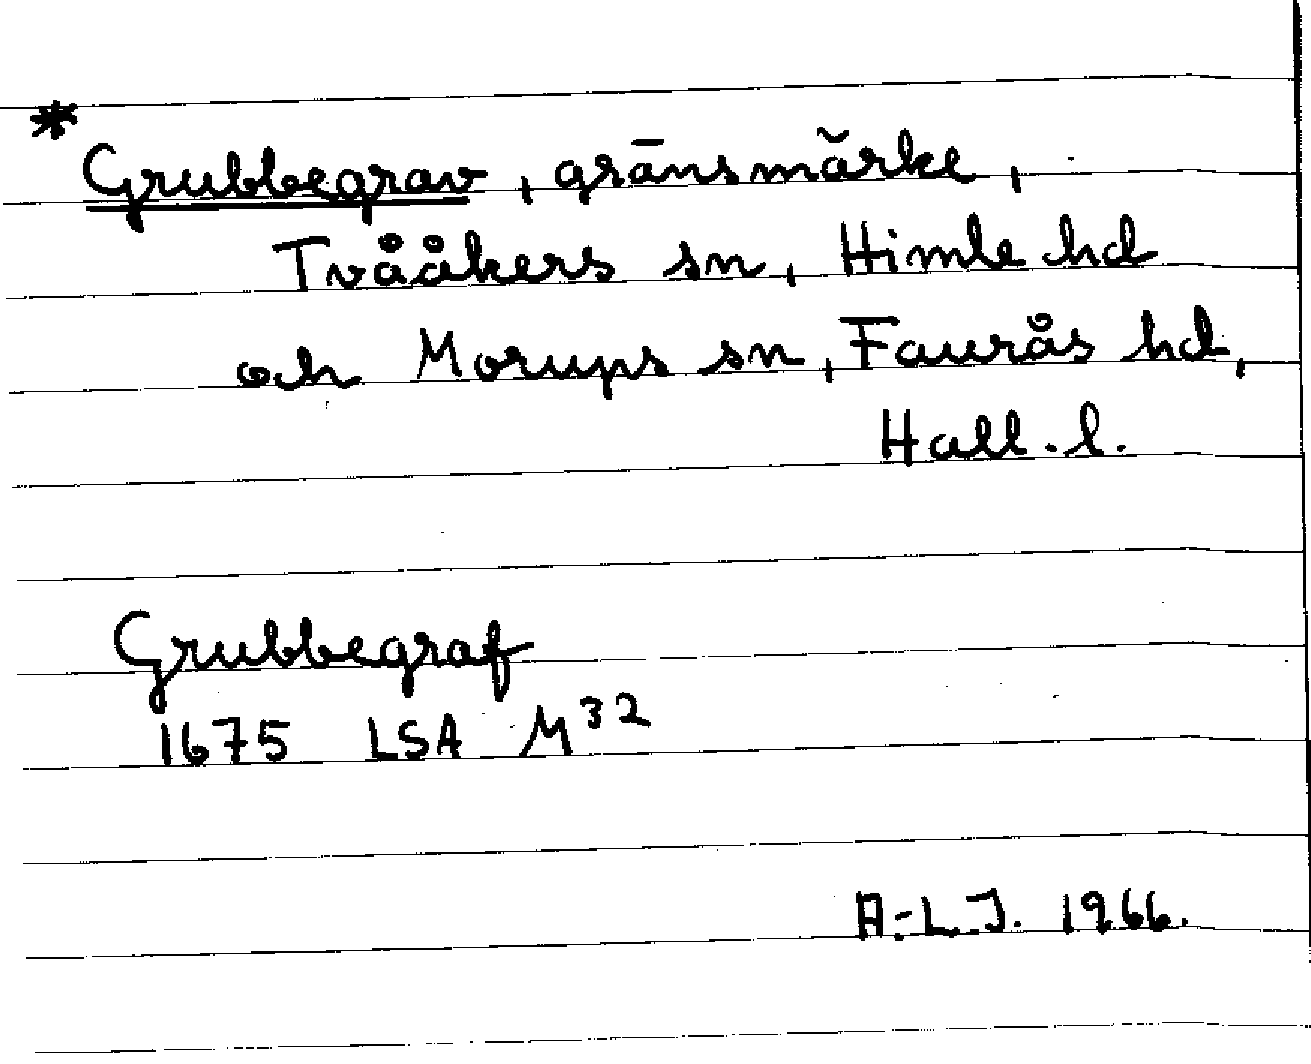 * Grubbegrav, gränsmärke,
Tvååkers sn, Himle hd
och Morups sn, Faurås hd,
Hall. l.
Grubbegraf
1675 LSA M³²
A.-L.J. 1966.